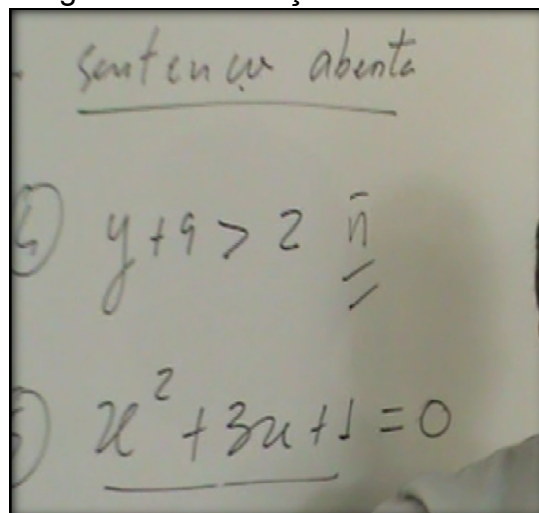 sentença aberta
4) y + 9 > 2 ñ
5) x² + 3x + 1 = 0